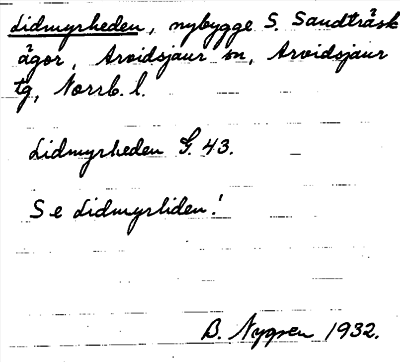 Lidmyrheden, nybygge S. Sandträsk
ägor, Arvidsjaur sn, Arvidsjaur
tg, Norrb. l.
Lidmyrheden G. 43.
Se Lidmyrliden!
B. Nygren 1932.